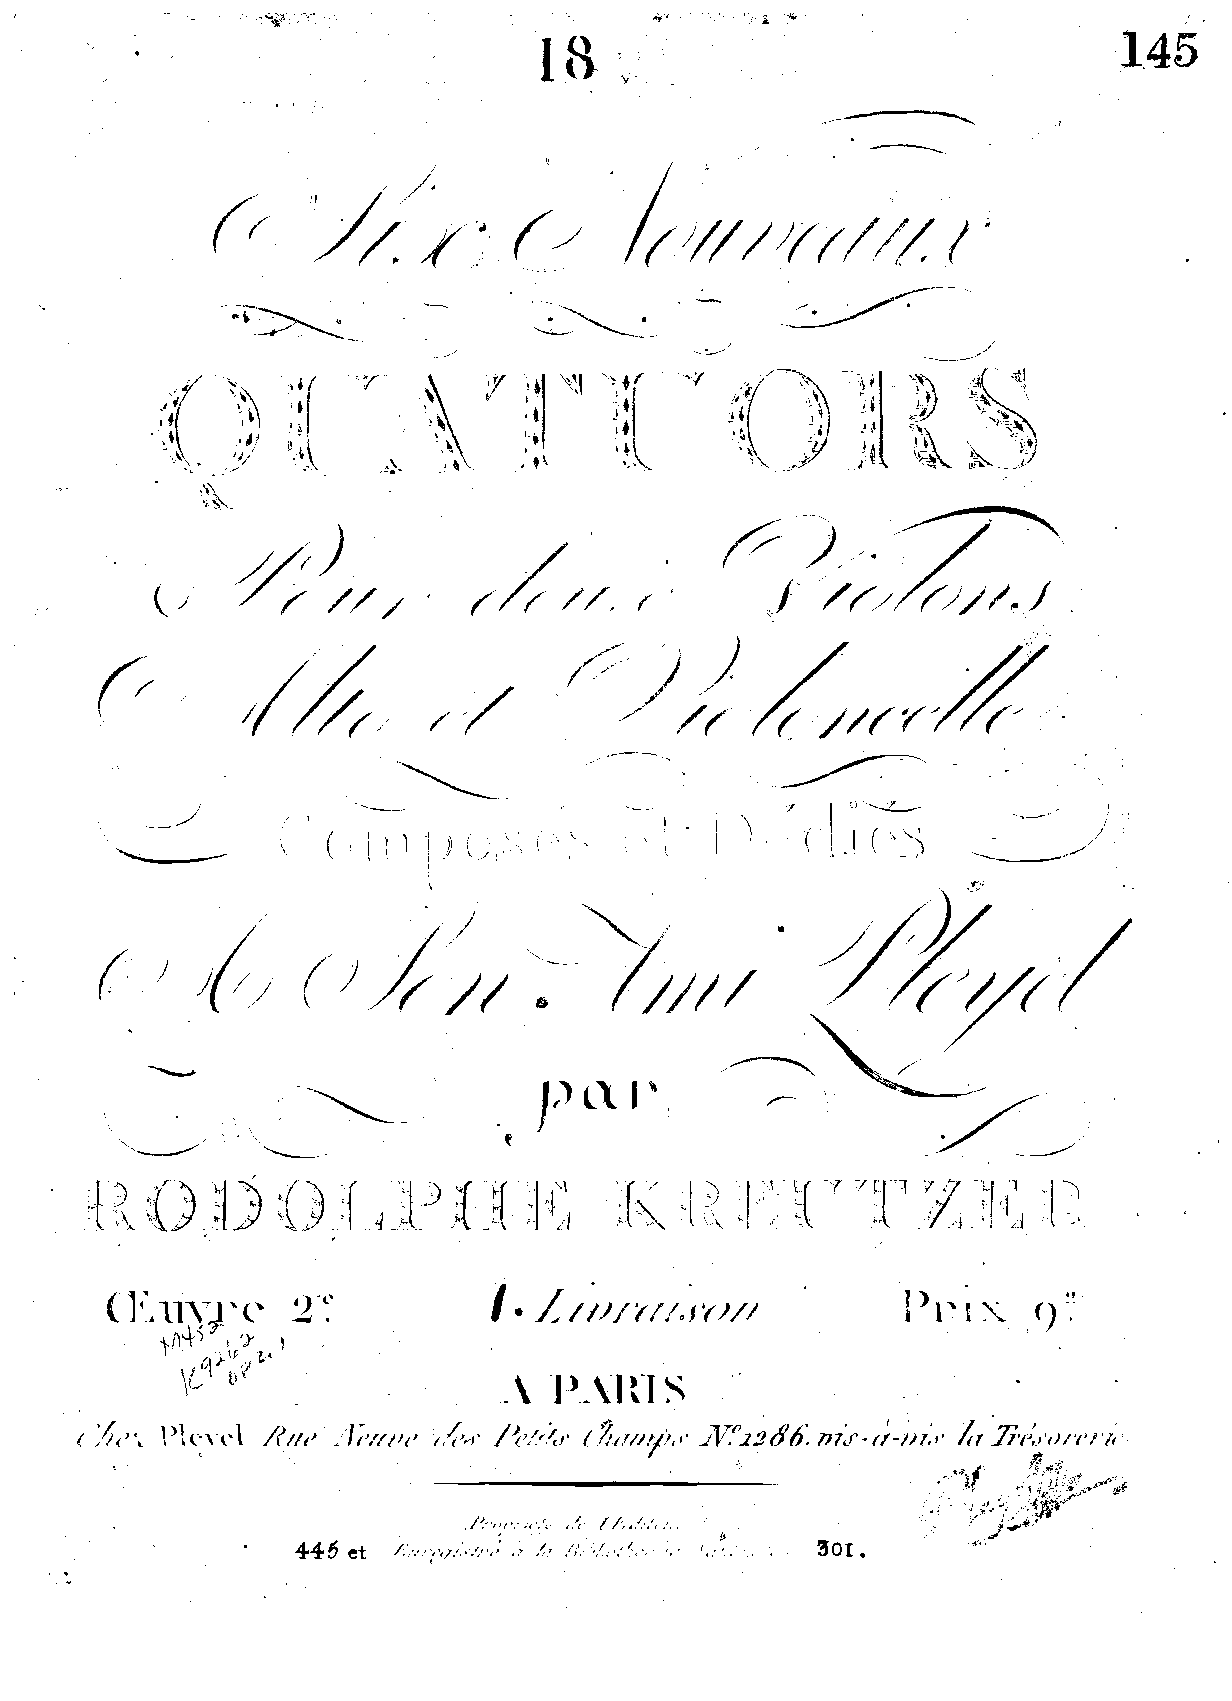 18
145
Six Nouveaux
QUATUORS
Pour deux Violons
Alto et Violoncelle
Composés et Dédiés
A Son Ami Pleyel
par
RODOLPHE KREUTZER
Œuvre 2e 1. Livraison Prix 9#
M452
K9262
op2.1
A PARIS
Chez Pleyel Rue Neuve des Petits Champs No. 1286. vis-à-vis la Trésorerie
Propriété de l'Editeur
445 et Enregistré à la Bibliothèque 301.